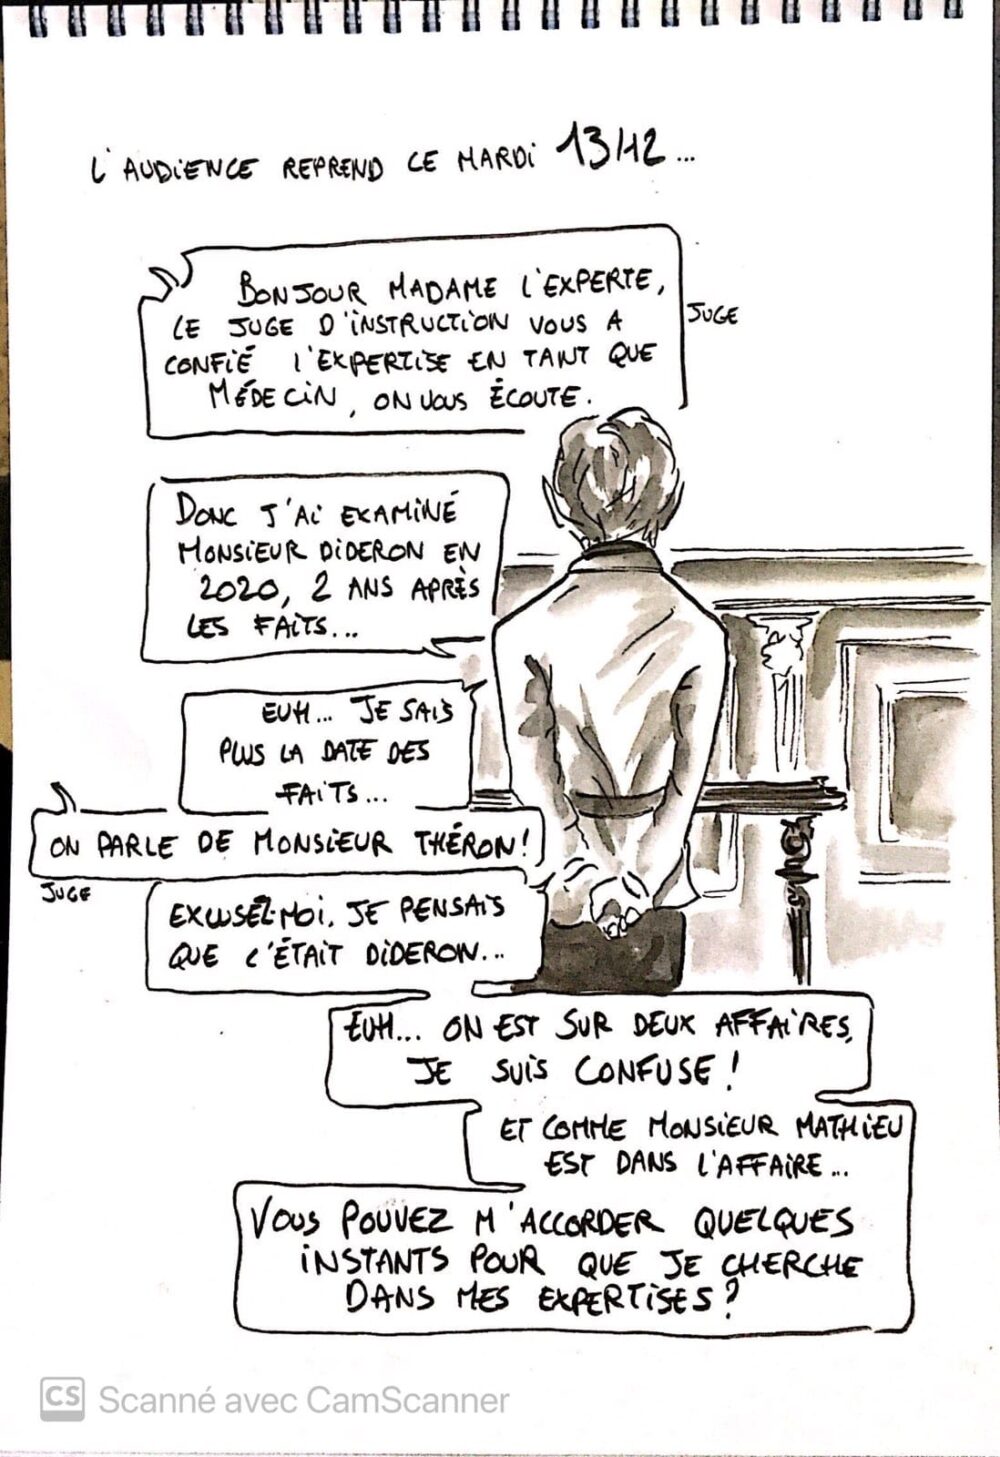 L'AUDIENCE REPREND CE MARDI 13/12...
BONJOUR MADAME L'EXPERTE,
LE JUGE D'INSTRUCTION VOUS A
CONFIÉ L'EXPERTISE EN TANT QUE
MÉDECIN, ON VOUS ÉCOUTE.
JUGE
DONC J'AI EXAMINÉ
MONSIEUR DIDERON EN
2020, 2 ANS APRÈS
LES FAITS...
EUH... JE SAIS
PLUS LA DATE DES
FAITS...
ON PARLE DE MONSIEUR THÉRON!
JUGE
EXCUSEZ-MOI, JE PENSAIS
QUE C'ÉTAIT DIDERON...
EUH... ON EST SUR DEUX AFFAIRES,
JE SUIS CONFUSE!
ET COMME MONSIEUR MATHIEU
EST DANS L'AFFAIRE...
VOUS POUVEZ M'ACCORDER QUELQUES
INSTANTS POUR QUE JE CHERCHE
DANS MES EXPERTISES?
CS Scanné avec CamScanner